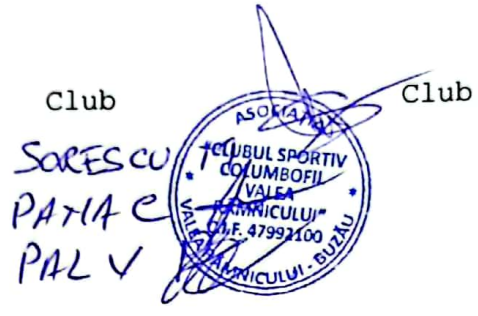 Club Club
SORESCU
PAMA C
PAL V
ASOCIAȚIA
"CLUBUL SPORTIV
COLUMBOFIL
VALEA
RÂMNICULUI"
C.I.F. 47992100
VALEA RÂMNICULUI - BUZĂU